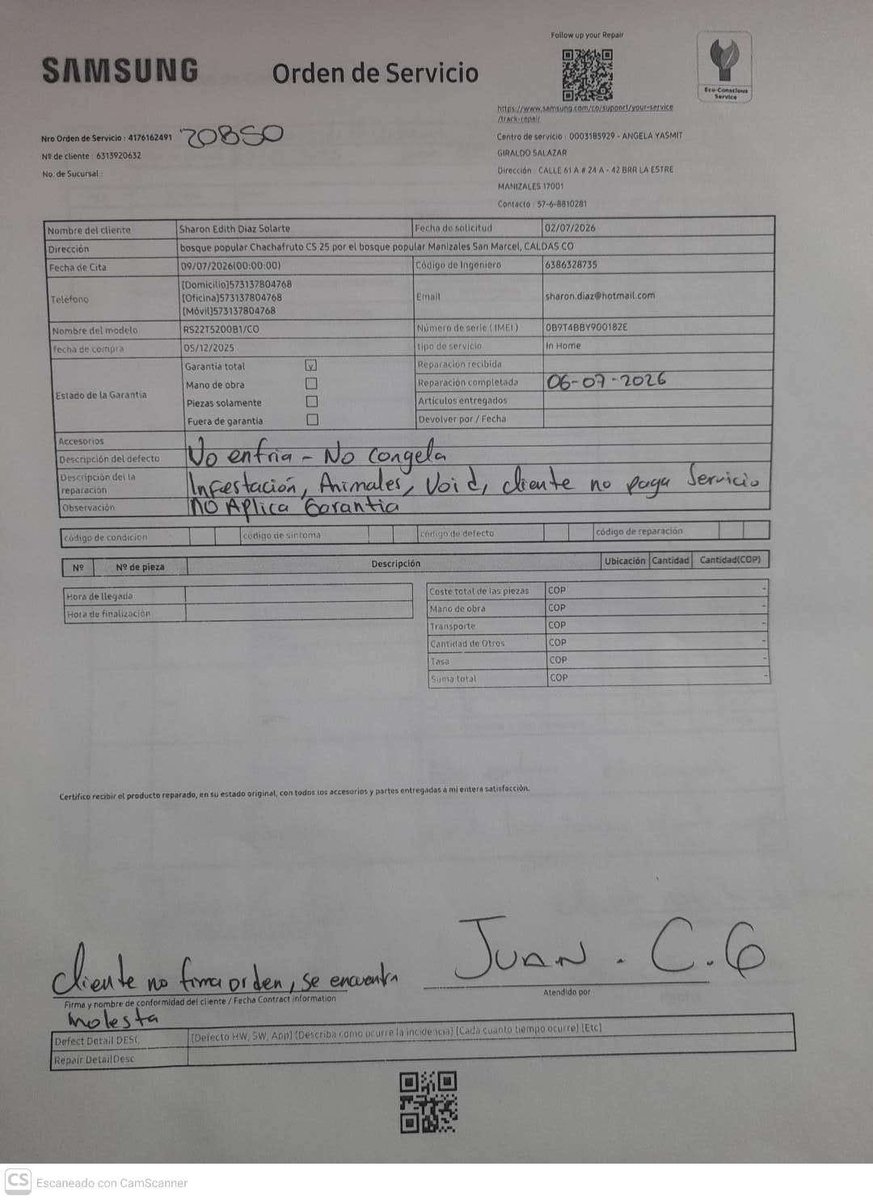 Follow up your Repair
SAMSUNG
Orden de Servicio
Eco-Conscious
Service
https://www.samsung.com/co/support/your-service
/track-repair
Nro Orden de Servicio : 4176162491 20850
Nº de cliente : 6313920632
No. de Sucursal :
Centro de servicio : 0003185929 - ANGELA YASMIT
GIRALDO SALAZAR
Dirección : CALLE 61 A # 24 A - 42 BRR LA ESTRE
MANIZALES 17001
Contacto : 57-6-8810281
Nombre del cliente Sharon Edith Diaz Solarte Fecha de solicitud 02/07/2026
Dirección bosque popular Chachafruto CS 25 por el bosque popular Manizales San Marcel, CALDAS CO
Fecha de Cita 09/07/2026(00:00:00) Código de Ingeniero 6386328735
Teléfono [Domicilio]573137804768
[Oficina]573137804768
[Móvil]573137804768
Email sharon.diaz@hotmail.com
Nombre del modelo RS22T5200B1/CO Número de serie ( IMEI ) 0B9T4BBY900182E
fecha de compra 05/12/2025 tipo de servicio In Home
Estado de la Garantía
Garantía total v
Mano de obra
Piezas solamente
Fuera de garantía
Reparación recibida
Reparación completada 06-07-2026
Artículos entregados
Devolver por / Fecha
Accesorios
Descripción del defecto No enfria - No Congela
Descripción del la
reparación Infestación, Animales, Void, cliente no paga Servicio
Observación NO Aplica Garantia
código de condicion código de síntoma código de defecto código de reparación
Nº Nº de pieza Descripción Ubicación Cantidad Cantidad(COP)
Hora de llegada
Hora de finalización
Coste total de las piezas COP -
Mano de obra COP -
Transporte COP -
Cantidad de Otros COP -
Tasa COP -
Suma total COP -
Certifico recibir el producto reparado, en su estado original, con todos los accesorios y partes entregados a mi entera satisfacción.
cliente no firma orden, se encuentra
molesta
Firma y nombre de conformidad del cliente / Fecha Contract information
Juan . C. G
Atendido por
Defect Detail DESC [Defecto HW, SW, App] [Describa como ocurre la incidencia] [Cada cuanto tiempo ocurre] [Etc]
Repair DetailDesc
CS Escaneado con CamScanner